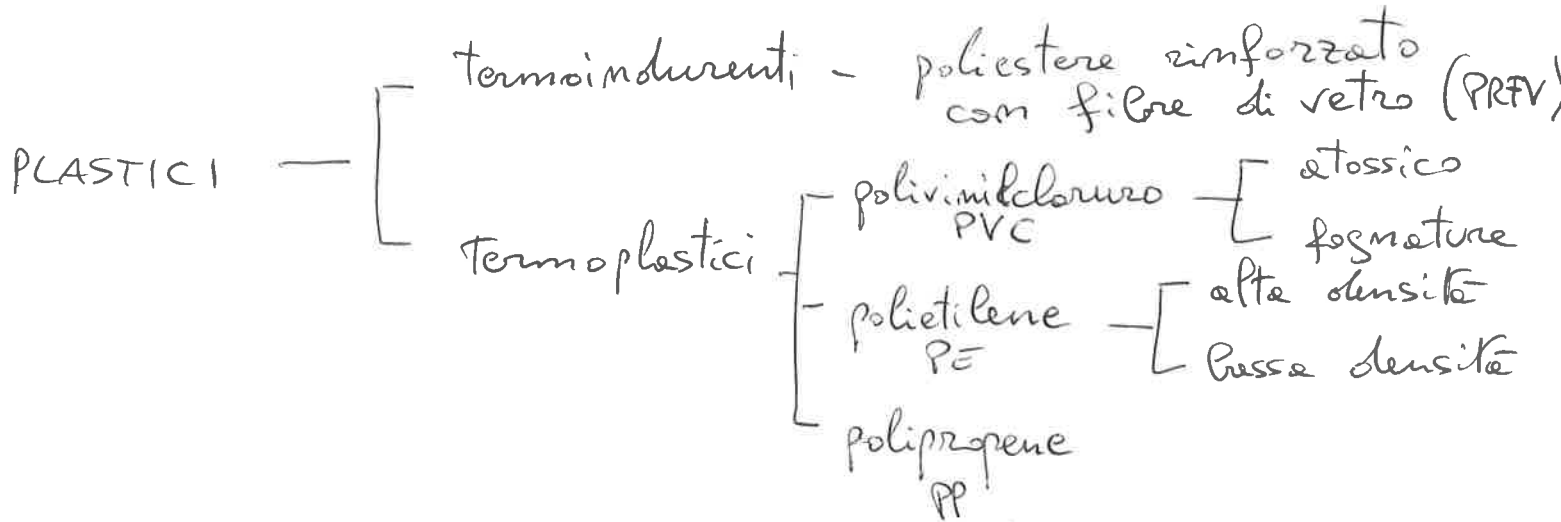 termoindurenti - poliestere rinforzato
con fibre di vetro (PRFV)
PLASTICI
termoplastici
polivinilcloruro
PVC
atossico
fognature
polietilene
PE
alta densità
bassa densità
polipropene
PP